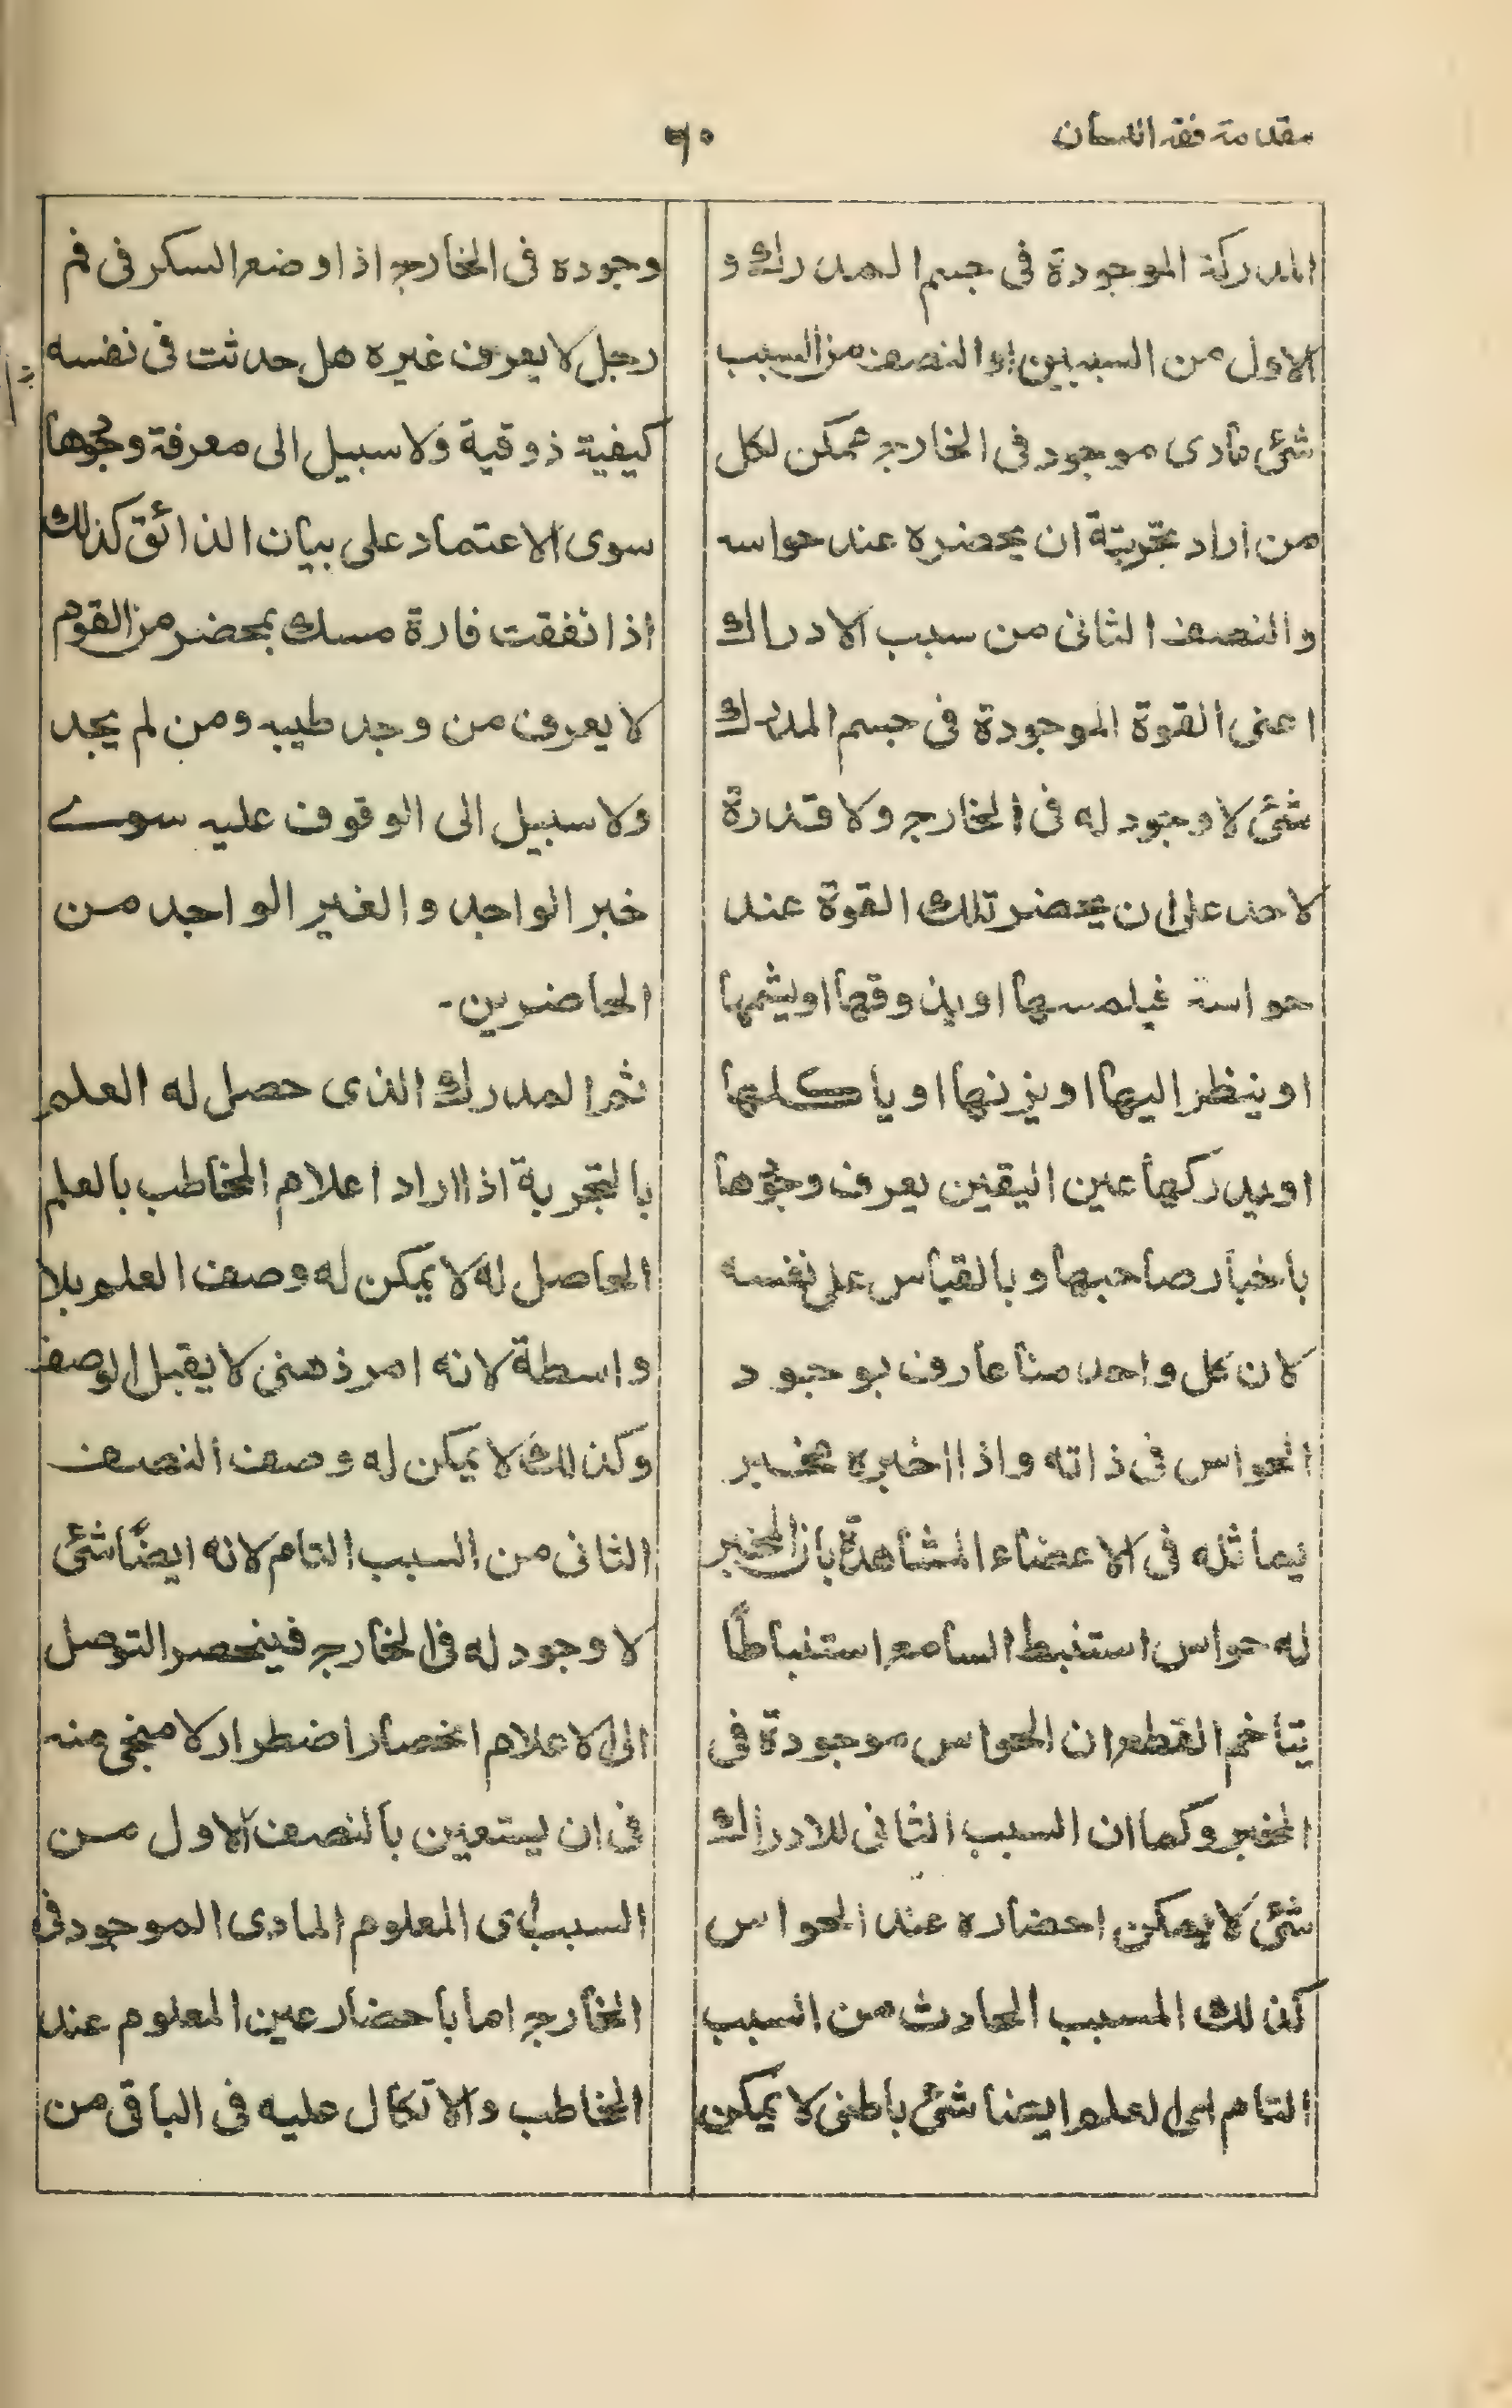 مقدمة فقه اللسان
٦٠
المدركة الموجودة فى جسم المدرك و
الاول من السببين او النصف من السبب
شئ مادى موجود فى الخارج ممكن لكل
من اراد تجربتة ان يحضره عند حواسه
والنصف الثانى من سبب الادراك
اعنى القوة الموجودة فى جسم المدرك
شئ لا وجود له فى الخارج ولا قدرة
لاحد على ان يحضر تلك القوة عند
حواسة فيلمسها او يذوقها او يشمها
او ينظر اليها او يزنها او ياكلها
او يدركها عين اليقين يعرف وجودها
باخبار صاحبها و بالقياس على نفسه
لان كل واحد منا عارف بوجود
الحواس فى ذاته واذا اخبره مخبر
يماثله فى الاعضاء المشاهدة بان المخبر
له حواس استنبط السامع استنباطًا
يتاخم القطع ان الحواس موجودة فى
المخبر وكما ان السبب الثانى للادراك
شئ لا يمكن احضاره عند الحواس
كذلك المسبب الحادث من السبب
التام اى العلم ايضا شئ باطنى لا يمكن
وجوده فى الخارج اذا وضع السكر فى فم
رجل لا يعرف غيره هل حدثت فى نفسه
كيفية ذوقية ولا سبيل الى معرفة وجودها
سوى الاعتماد على بيان الذائق كذلك
اذا نفقت فارة مسك بمحضر من القوم
لا يعرف من وجد طيبه ومن لم يجد
ولا سبيل الى الوقوف عليه سوے
خبر الواجد والغير الواجد من
الحاضرين۔
ثم المدرك الذى حصل له العلم
بالتجربة اذا اراد اعلام المخاطب بالعلم
الحاصل له لا يمكن له وصف العلم بلا
واسطة لانه امر ذهنى لا يقبل الوصف
وكذلك لا يمكن له وصف النصف
الثانى من السبب التام لانه ايضًا شئ
لا وجود له فى الخارج فينحصر التوصل
الى الاعلام انحصار اضطرار لا منجى منه
فى ان يستعين بالنصف الاول من
السبب اى المعلوم المادى الموجود فى
الخارج اما باحضار عين المعلوم عند
المخاطب والاتكال عليه فى الباقى من